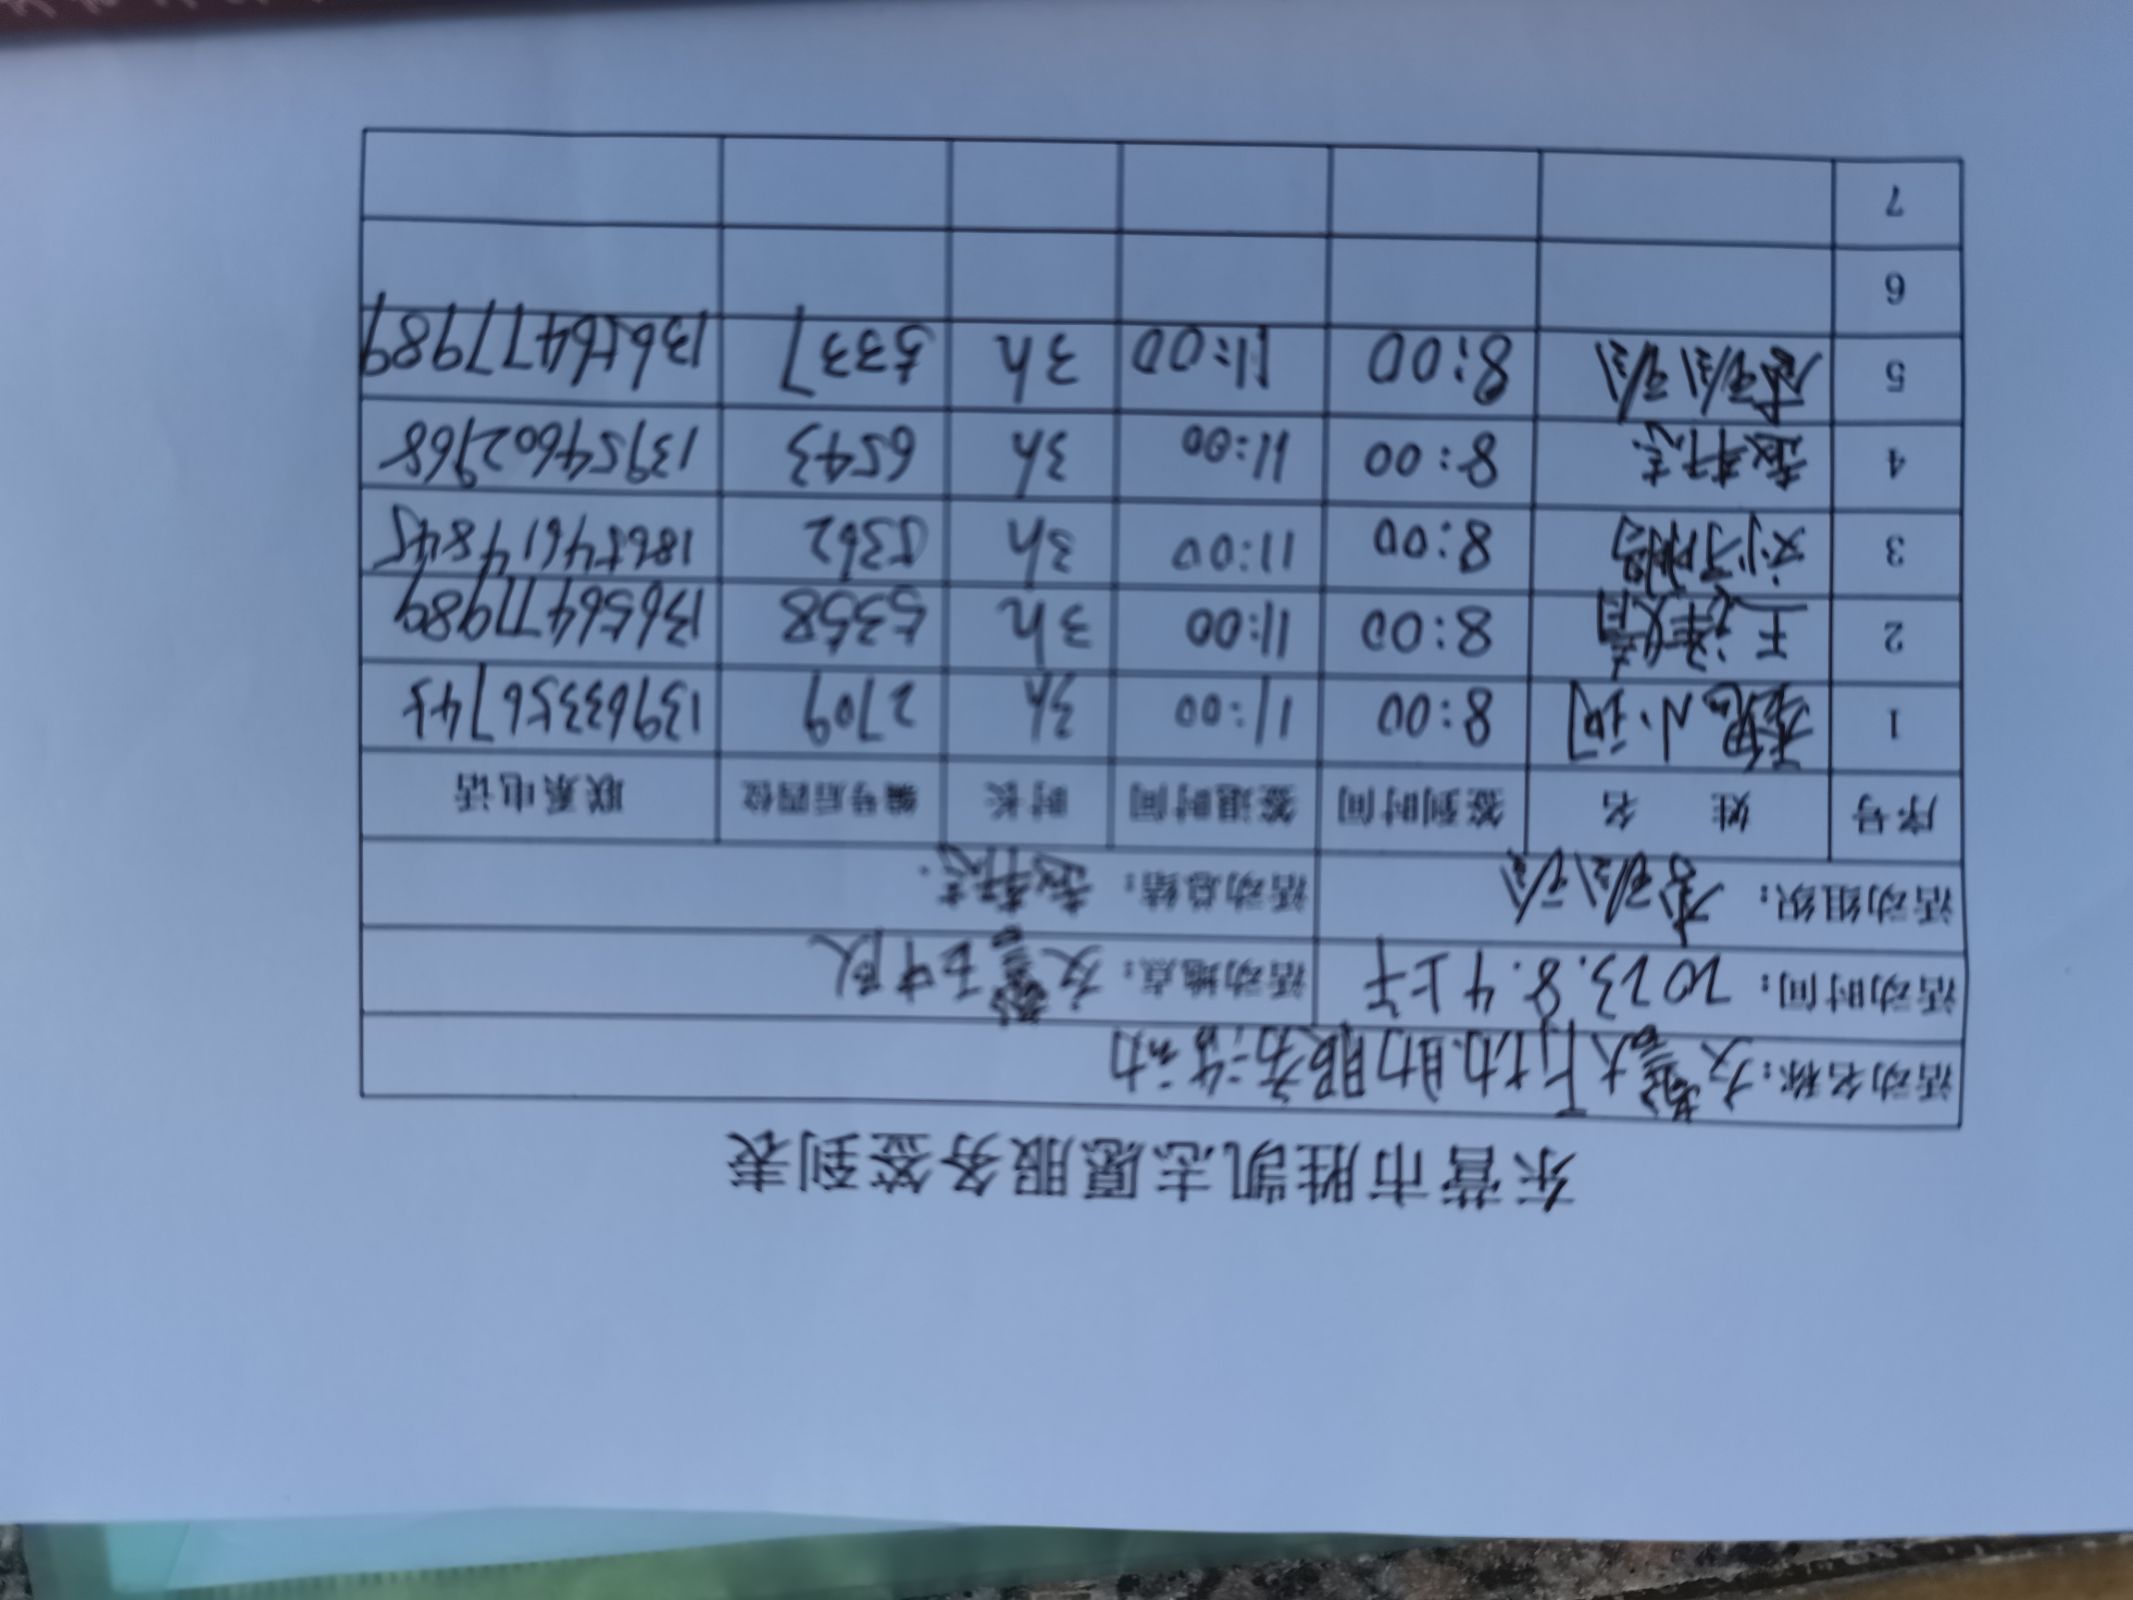 东营市胜凯志愿服务签到表
活动名称：交警大队协助服务活动
活动时间：2023.8.4上午 活动地点：交警五中队
活动组织： 活动总结：赵轩志
序号 姓 名 签到时间 签退时间 时长 编号后四位 联系电话
1 8:00 11:00 3h 2709 13963356745
2 8:00 11:00 3h 5358 13656477989
3 8:00 11:00 3h 5362 18654614845
4 赵轩志 8:00 11:00 3h 6543 13954602968
5 8:00 11:00 3h 5337 13656477989
6
7